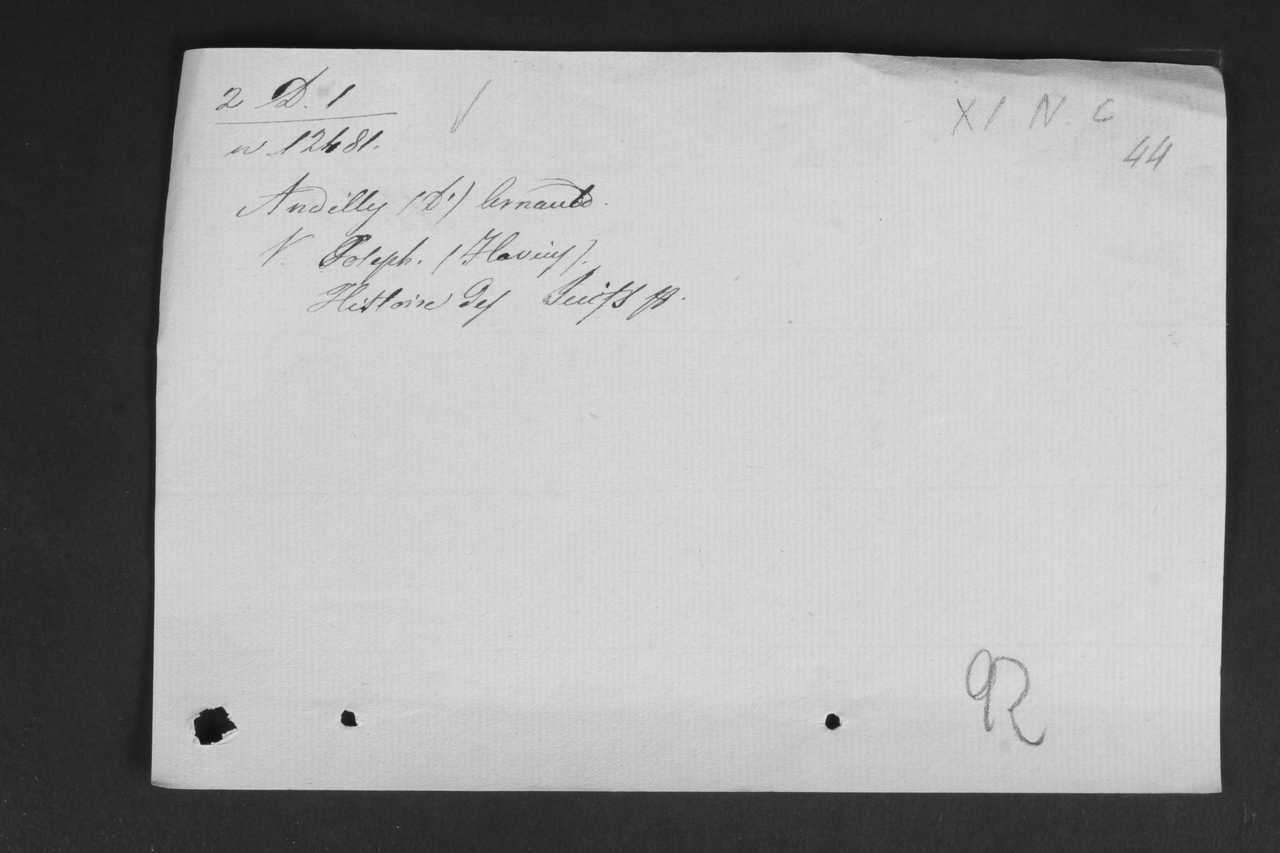 2 D. 1
XI N. C
44
n 12481.
Andilly (D') Arnauld.
V. Joseph. (Flavius).
Histoire des Juifs
92